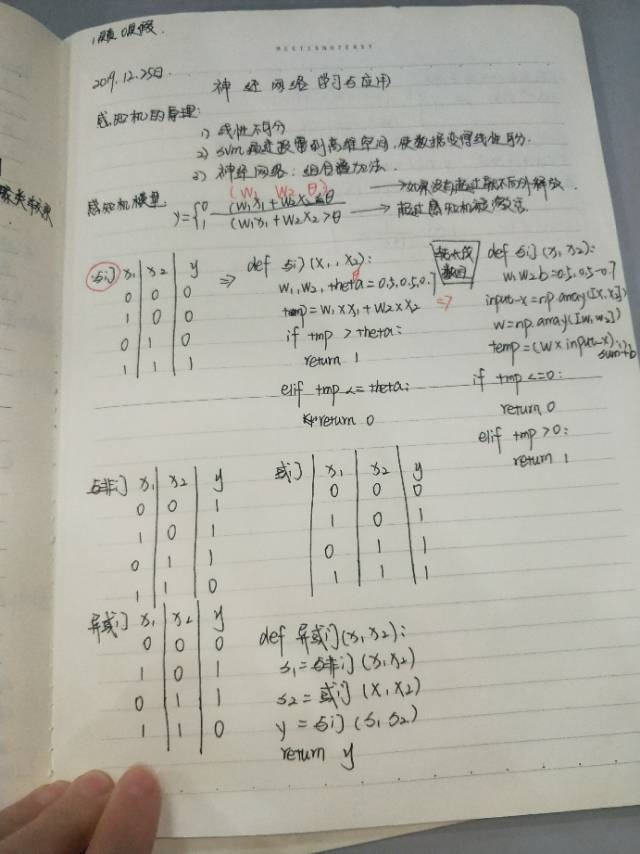 1是真 0是假.
MEETINGNOTEKEY
2019.12.25日.
神经网络学习与应用
感知机的原理:
1) 线性不可分
2) SVM 通过投累到高维空间, 使数据变得线性可分.
3) 神经网络: 组合叠加法.
(W1 W2 θ)
感知机模型 y={0 (W1X1+W2X2≤θ →如果没有超过取不向外释放.
1 (W1X1+W2X2>θ → 超过感知机被激活.
与门 x1 x2 y
0 0 0
1 0 0
0 1 0
1 1 1
⇒ def 与门(X1,X2):
W1,W2,theta=0.5,0.5,0.7
tmp=W1×X1+W2×X2
if tmp>theta:
return 1
elif tmp<=theta:
return 0
⇒
def 与门(X1,X2):
W1W2b=0.5,0.5-0.7
input-x=np.array([X1,X2])
W=np.array([W1,W2])
temp=(W×input-x).
sum+b
if tmp<=0:
return 0
elif tmp>0:
return 1
与非门 x1 x2 y
0 0 1
1 0 1
0 1 1
1 1 0
或门 x1 x2 y
0 0 0
1 0 1
0 1 1
1 1 1
异或门 x1 x2 y
0 0 0
1 0 1
0 1 1
1 1 0
def 异或门(X1X2):
S1=与非门(X1X2)
S2=或门(X1X2)
y=与门(S1S2)
return y